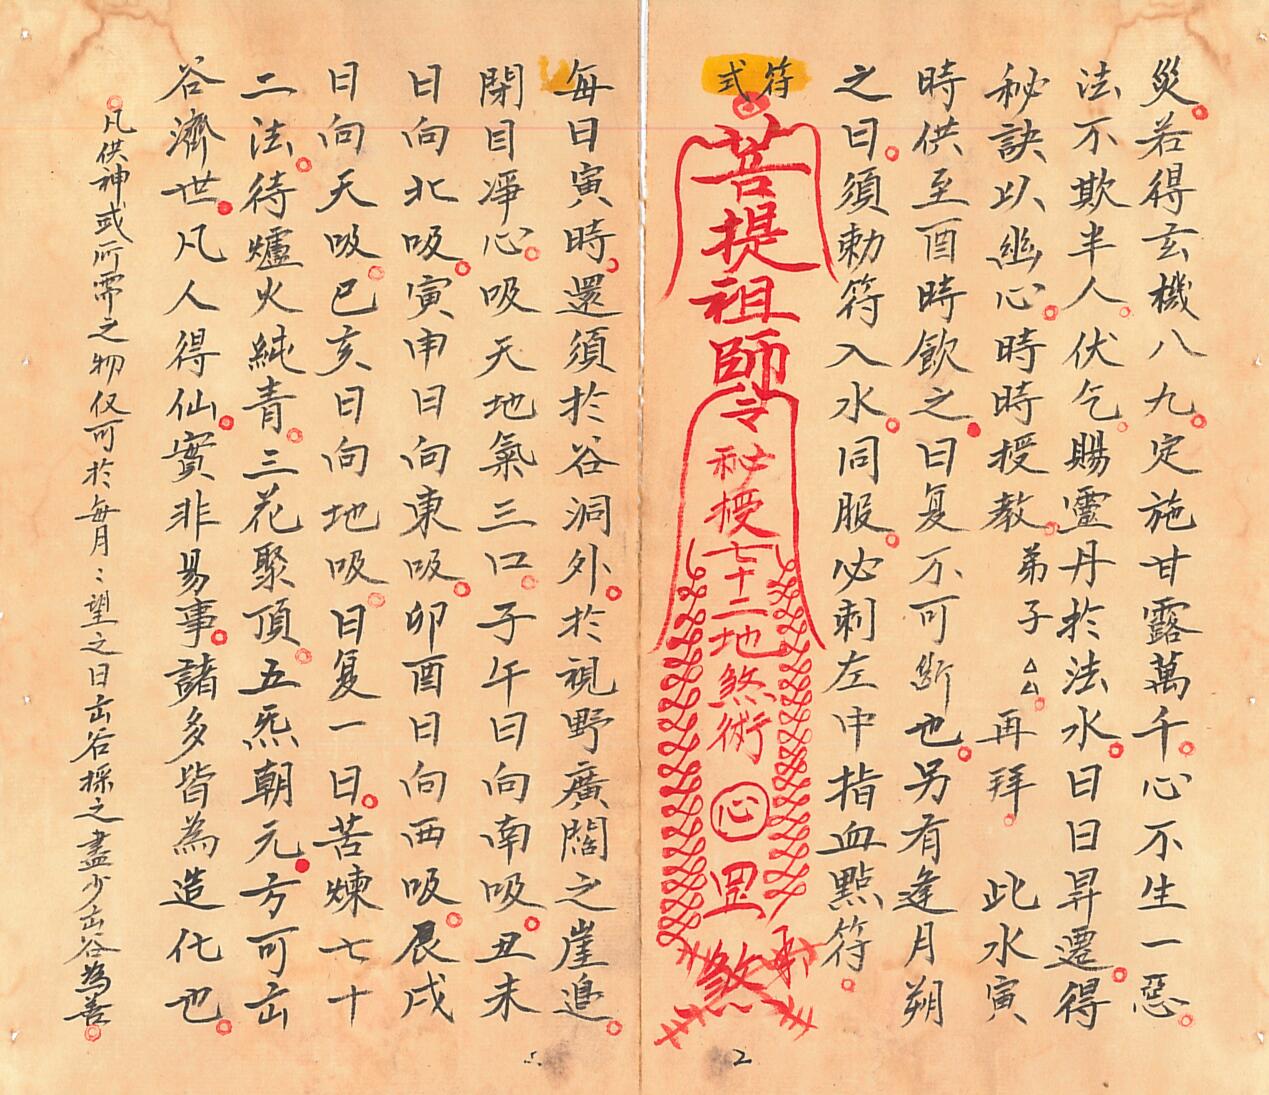 災若得玄機八九定施甘露萬千心不生一惡
法不欺半人伏乞賜靈丹於法水日日昇遷得
秘訣以幽心時時授教弟子△△再拜 此水寅
時供至酉時飲之日复不可斷也另有逢月朔
之日須勅符入水同服必刺左中指血點符
符式
菩提祖師令秘授七十二地煞術心罡煞
2
每日寅時還須於谷洞外於視野廣闊之崖邊
閉目凈心吸天地氣三口子午日向南吸丑未
日向北吸寅申日向東吸卯酉日向西吸辰戌
日向天吸巳亥日向地吸日复一日苦煉七十
二法待爐火純青三花聚頂五炁朝元方可出
谷濟世凡人得仙實非易事諸多皆為造化也
凡供神或所需之物仅可於每月:望之日出谷採之盡少出谷為善